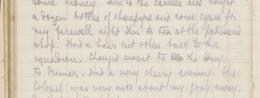 some money. Then to the canteen and bought
a dozen bottles of champagne and some cigars for
my farewell night then to tea at the patisserie
shop. Had a hair cut then back to the
squadron. Changed & went to the
to dinner. Had a very cheery evening. The
Colonel was very nice about my going away.